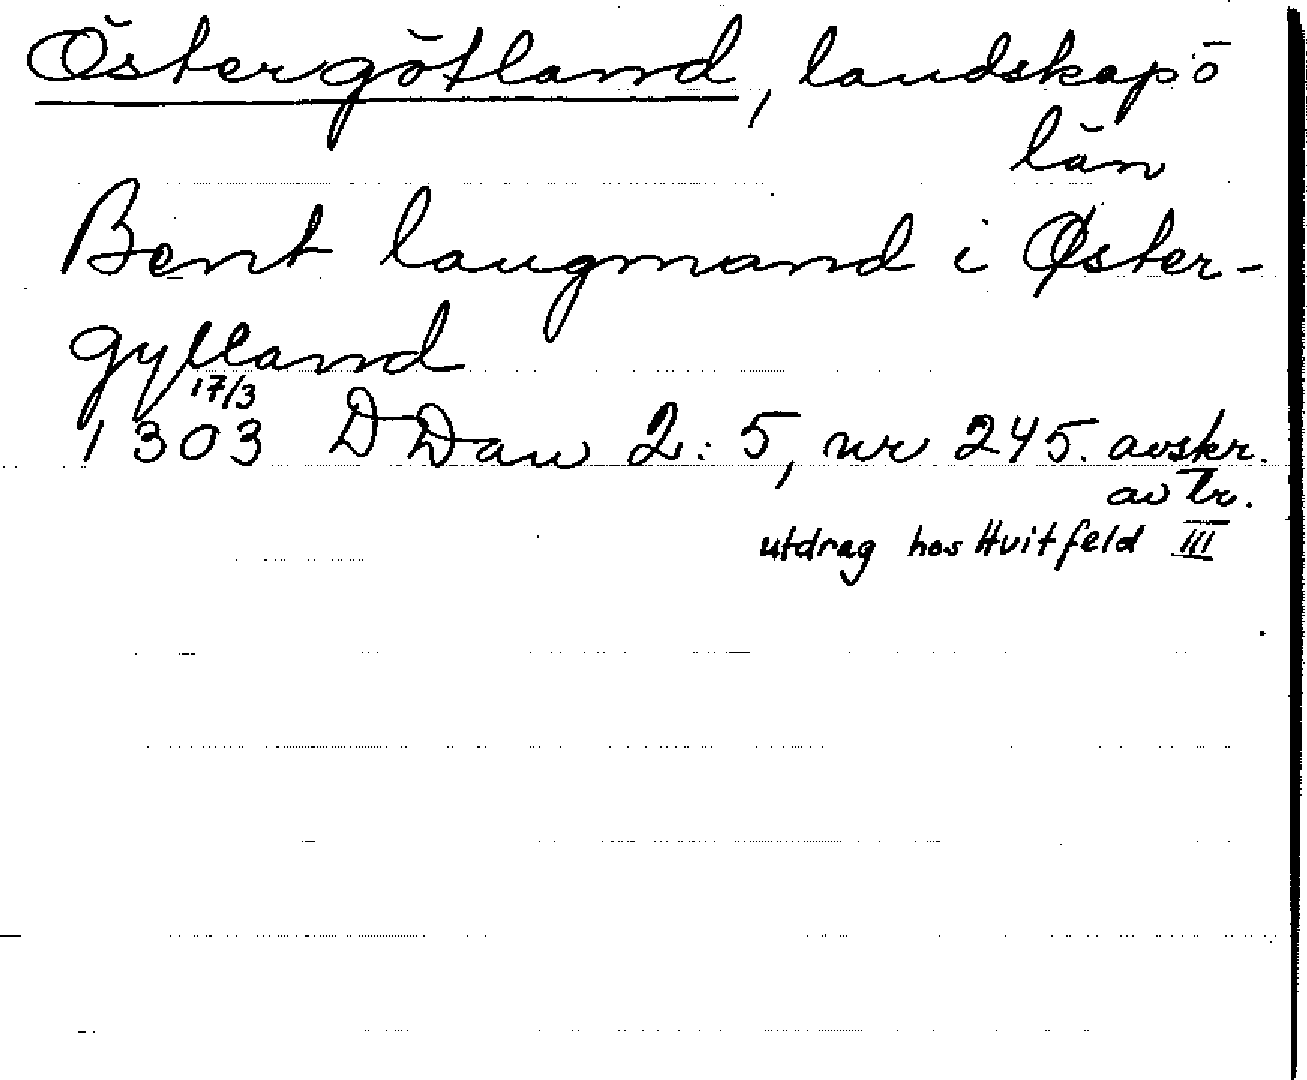 Östergötland, landskap o
län
Bent laugmand i Øster-
gylland
17/3
1303 DDan 2:5, nr 245. avskr.
av Tr.
utdrag hos Hvitfeld III